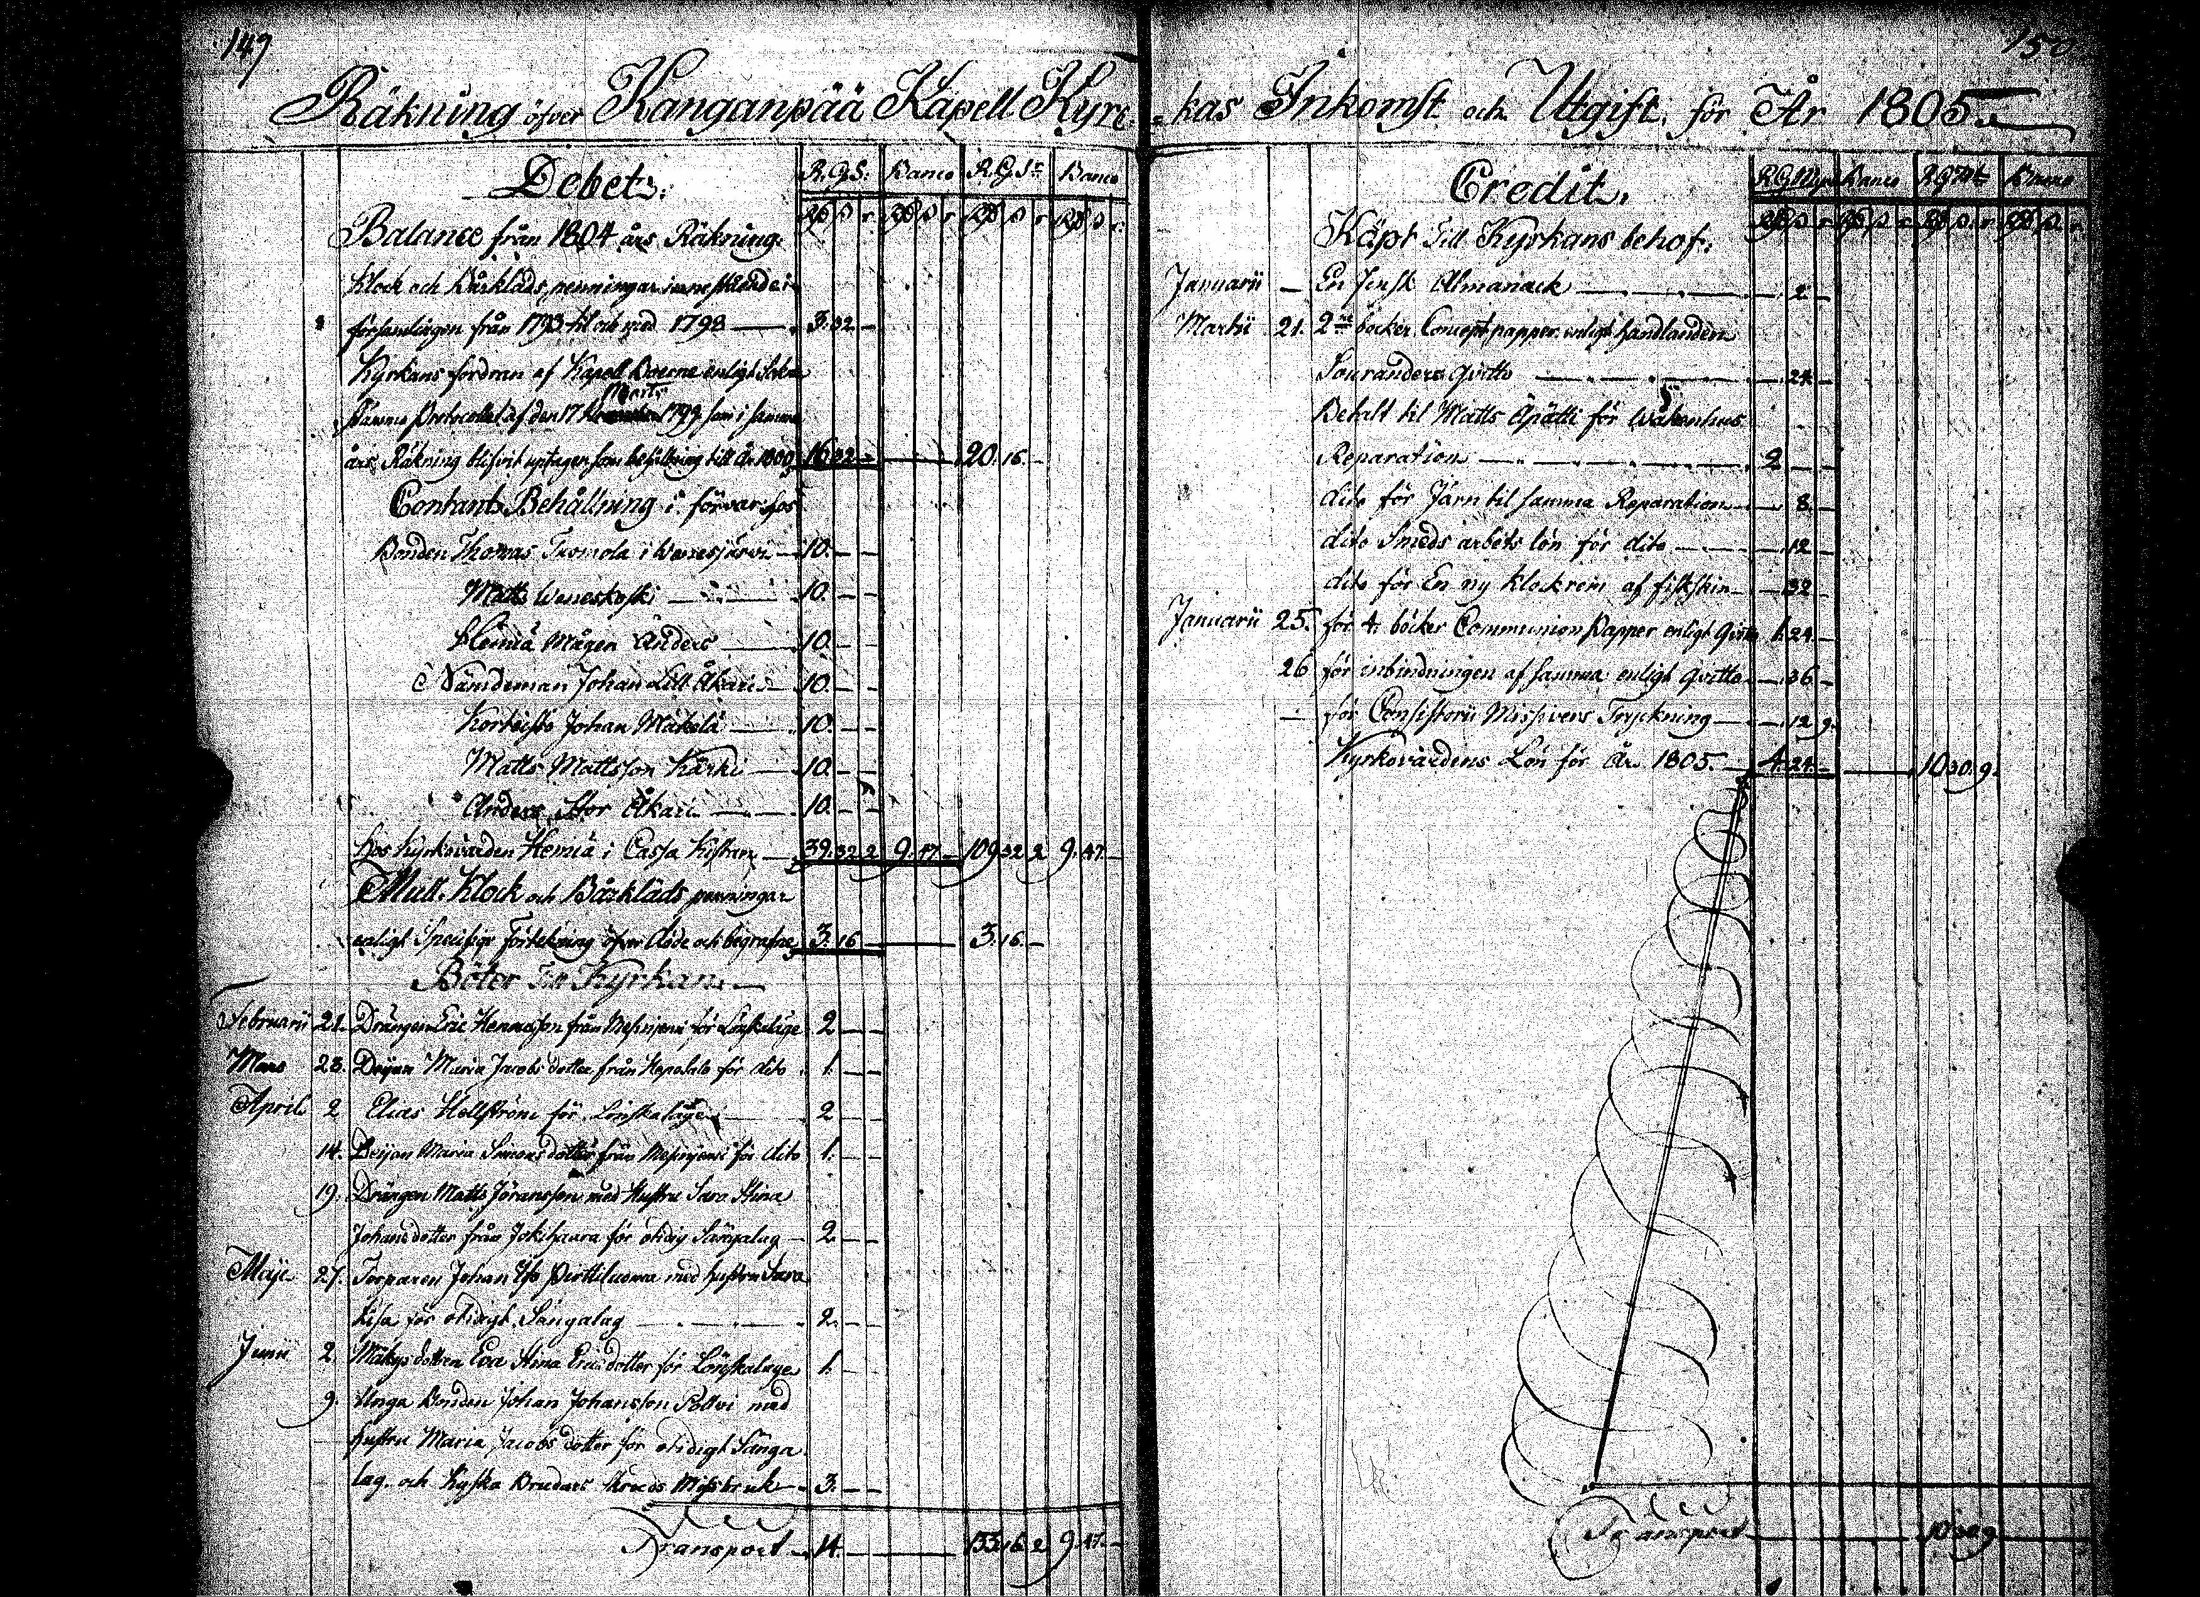 149
150
Räkning öfver Kanganpää Kapell Kyrc-
kas Inkomst och Utgift för År 1805.
Debet:
R.G.S: Banco R.G.S:r Banco
Balance från 1804 års Räkning:
Klock och Bårkläds penningar innestående i
församlingen från 1793 til och med 1798 — 3. 32 —
Kyrkans fordran af Kapell Boerne enligt Sokne
Stämmo Protocollet af den 17 Martii 1799 som i samma
års Räkning blifvit uptagen som behållning till år 1800 16. 32 — 20. 16. —
Contant Behållning i förvar hos
Bonden Thomas Tuomola i Wenesjärvi — 10. — —
Matts Weneskoski — 10. — —
Hemiä Mågen Anders — 10. — —
Nämdeman Johan Lill Åkari — 10. — —
Johan Mäkelä — 10. — —
Matts Mattsson Kärki — 10. — —
Anders Stor Åkari — 10. — —
Hos Kyrkovärden Hemiä i Cassa Kistan — 39. 32. 2 9. 47. — 109. 32. 2 9. 47. —
Mull. Klock och Bårkläds penningar
enligt Specifiqe Förtekning öfver döde och begrafne 3. 16 — 3. 16. —
Böter Till Kyrkan.
Februarii 21. Drängen Eric Henricsson från för Lönskaläge 2 — —
Mars 23. Pigan Maria Jacobs dotter från för dito 1. — —
April 2 Elias Hellström för Lönskaläge — 2 — —
14. Pigan Maria Simons dotter från för dito 1. — —
19. Drängen Matts Göransson med Hustru Sara Stina
Johans dotter från Jokihaara för otidig Sängalag — 2. — —
Maji 27. Torparen Johan Pirttiluoma med hustru Sara
Lisa för otidigt Sängalag — 2. — —
Junii 2. dottren Eva Stina Ericsdotter för Lönskaläge 1. — —
9. Unga Bonden Johan Johansson med
hustru Maria Jacobs dotter för otidigt Sänga
lag. och Kyska Brudars Missbruk — 3. — —
Transport — 14. — — 133. 16. 2 9. 47. —
Credit.
Banco Banco
Köpt Till Kyrkans behof:
Januarii — En finsk Almanack — — 2 —
Martii 21. 2:ne böcker Concept papper enligt handlanden
Qvitto — — 24 —
Betalt til Matts för Wåkenhus
Reparation — 2 — —
dito för Järn til samma Reparation — — 8. —
dito Smeds arbets lön för dito — — 12 —
dito för En ny klockrem af fiskskin — — 32 —
Januarii 25. för 4. böcker Communion Papper enligt Qvitto 1. 24. —
26 för inbindningen af samma enligt Qvitto — — 36 —
— för Consistorii Missivers Tryckning — — 12 9.
Kyrkovärdens Lön för År 1805. — 4. 24. — 10. 30. 9.
Transport — 10. 30. 9